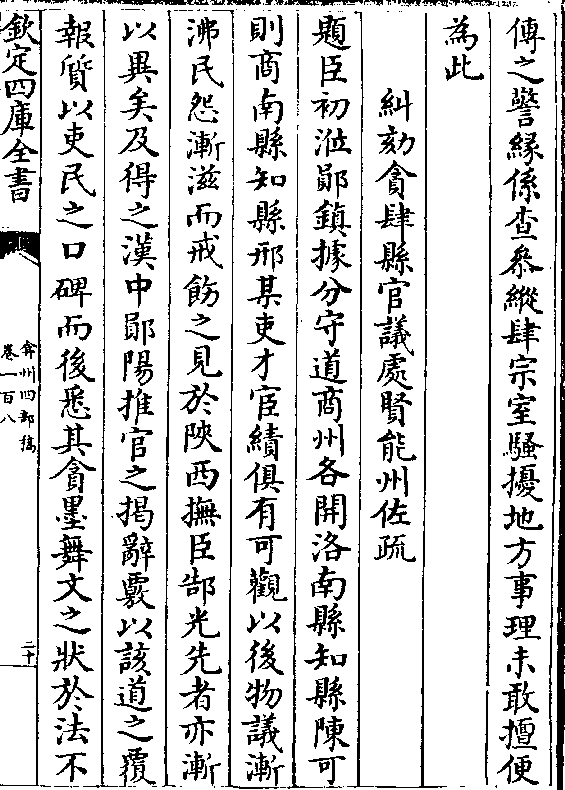 傳之譬緣係查叅縱肆宗室騷擾地方事理未敢擅便
為此
糾劾貪肆縣官議處賢能州佐疏
題臣初涖鄖鎮據分守道商州各開洛南縣知縣陳可
則商南縣知縣邢某吏才宦績俱有可觀以後物議漸
沸民怨漸滋而戒飭之見於陝西撫臣郜光先者亦漸
以異矣及得之漢中鄖陽推官之揭辭覈以該道之覆
報質以吏民之口碑而後悉其貪墨舞文之狀於法不
欽定四庫全書
弇州四部稿
卷一百八
二十